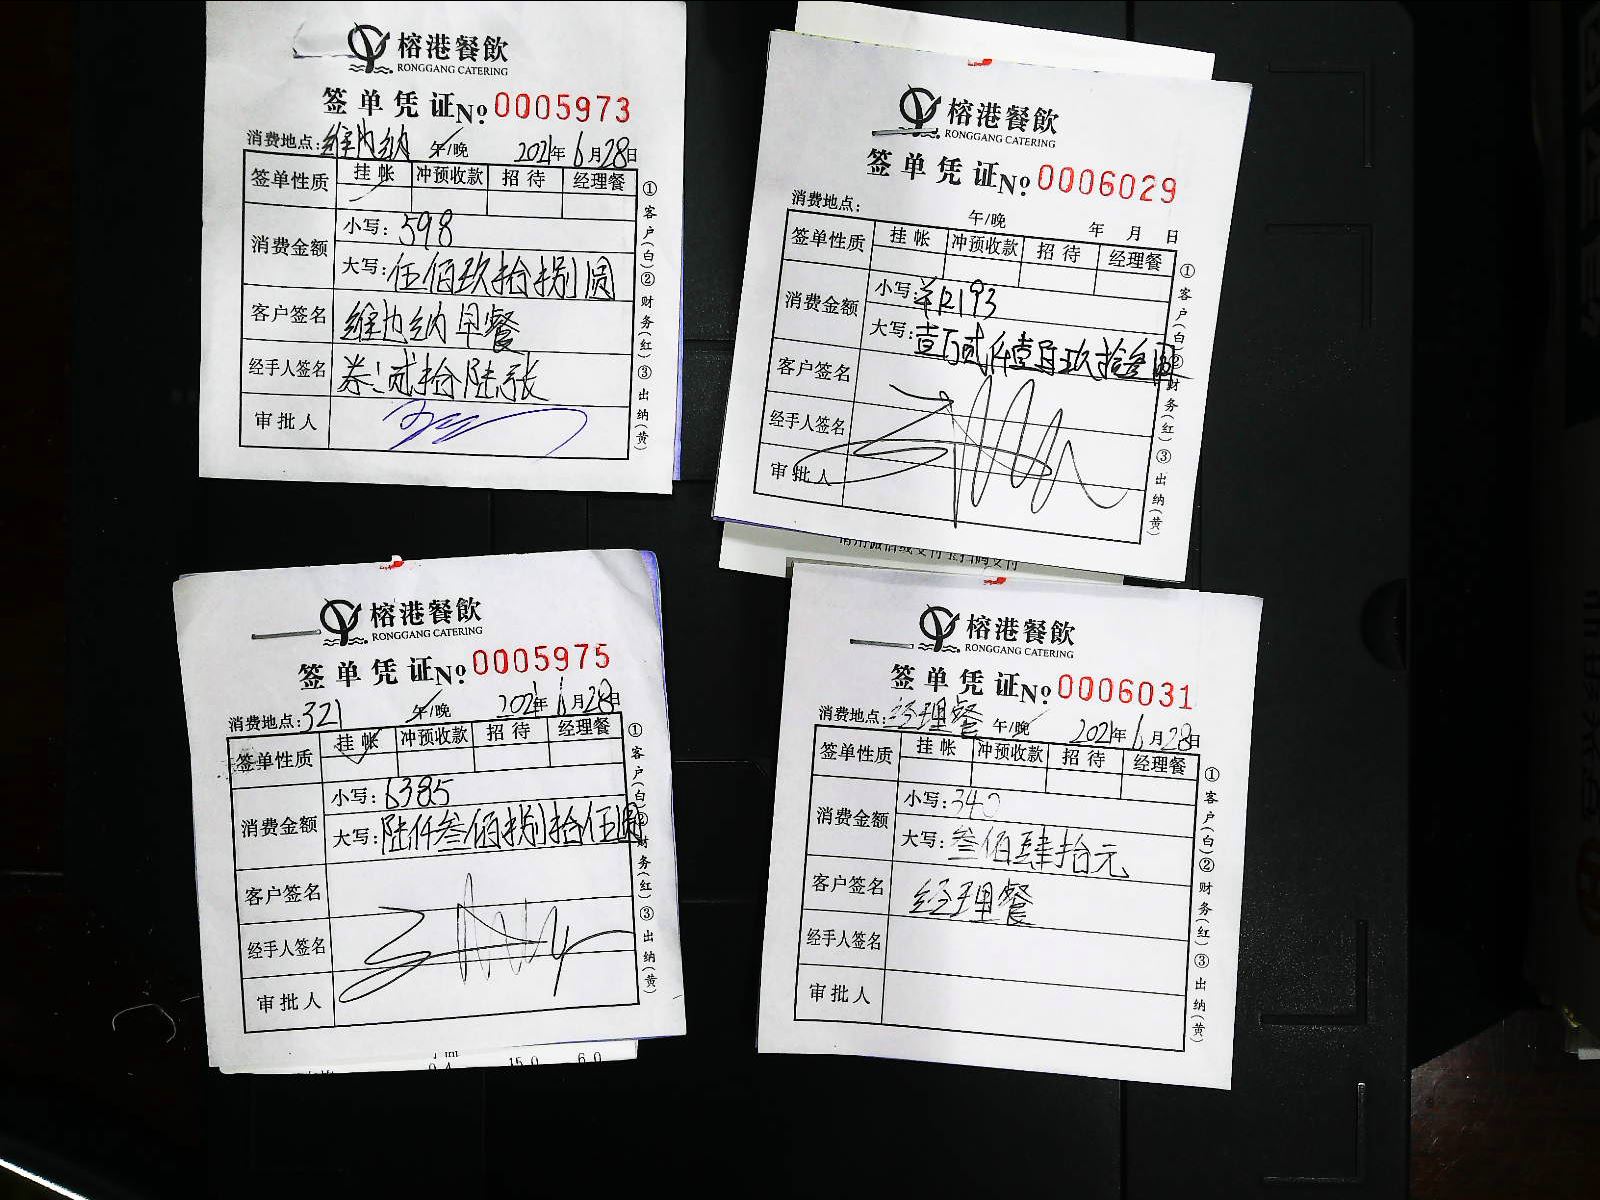 榕港餐飲
RONGGANG CATERING
签单凭证No 0005973
消费地点:维也纳 午/晚 2021年6月28日
签单性质 挂帐 冲预收款 招待 经理餐
消费金额 小写:598
大写:伍佰玖拾捌圆
客户签名 维也纳早餐
经手人签名 券:贰拾陆张
审批人
①客户(白)②财务(红)③出纳(黄)
榕港餐飲
RONGGANG CATERING
签单凭证No 0006029
消费地点: 午/晚 年 月 日
签单性质 挂帐 冲预收款 招待 经理餐
消费金额 小写:
大写:
客户签名
经手人签名
审批人
①客户(白)②财务(红)③出纳(黄)
榕港餐飲
RONGGANG CATERING
签单凭证No 0005975
消费地点:321 午/晚 2021年6月28日
签单性质 挂帐 冲预收款 招待 经理餐
消费金额 小写:6385
大写:陆仟叁佰捌拾伍圆
客户签名
经手人签名
审批人
①客户(白)②财务(红)③出纳(黄)
15.0 6.0
榕港餐飲
RONGGANG CATERING
签单凭证No 0006031
消费地点:经理餐 午/晚 2021年6月28日
签单性质 挂帐 冲预收款 招待 经理餐
消费金额 小写:340
大写:叁佰肆拾元
客户签名 经理餐
经手人签名
审批人
①客户(白)②财务(红)③出纳(黄)